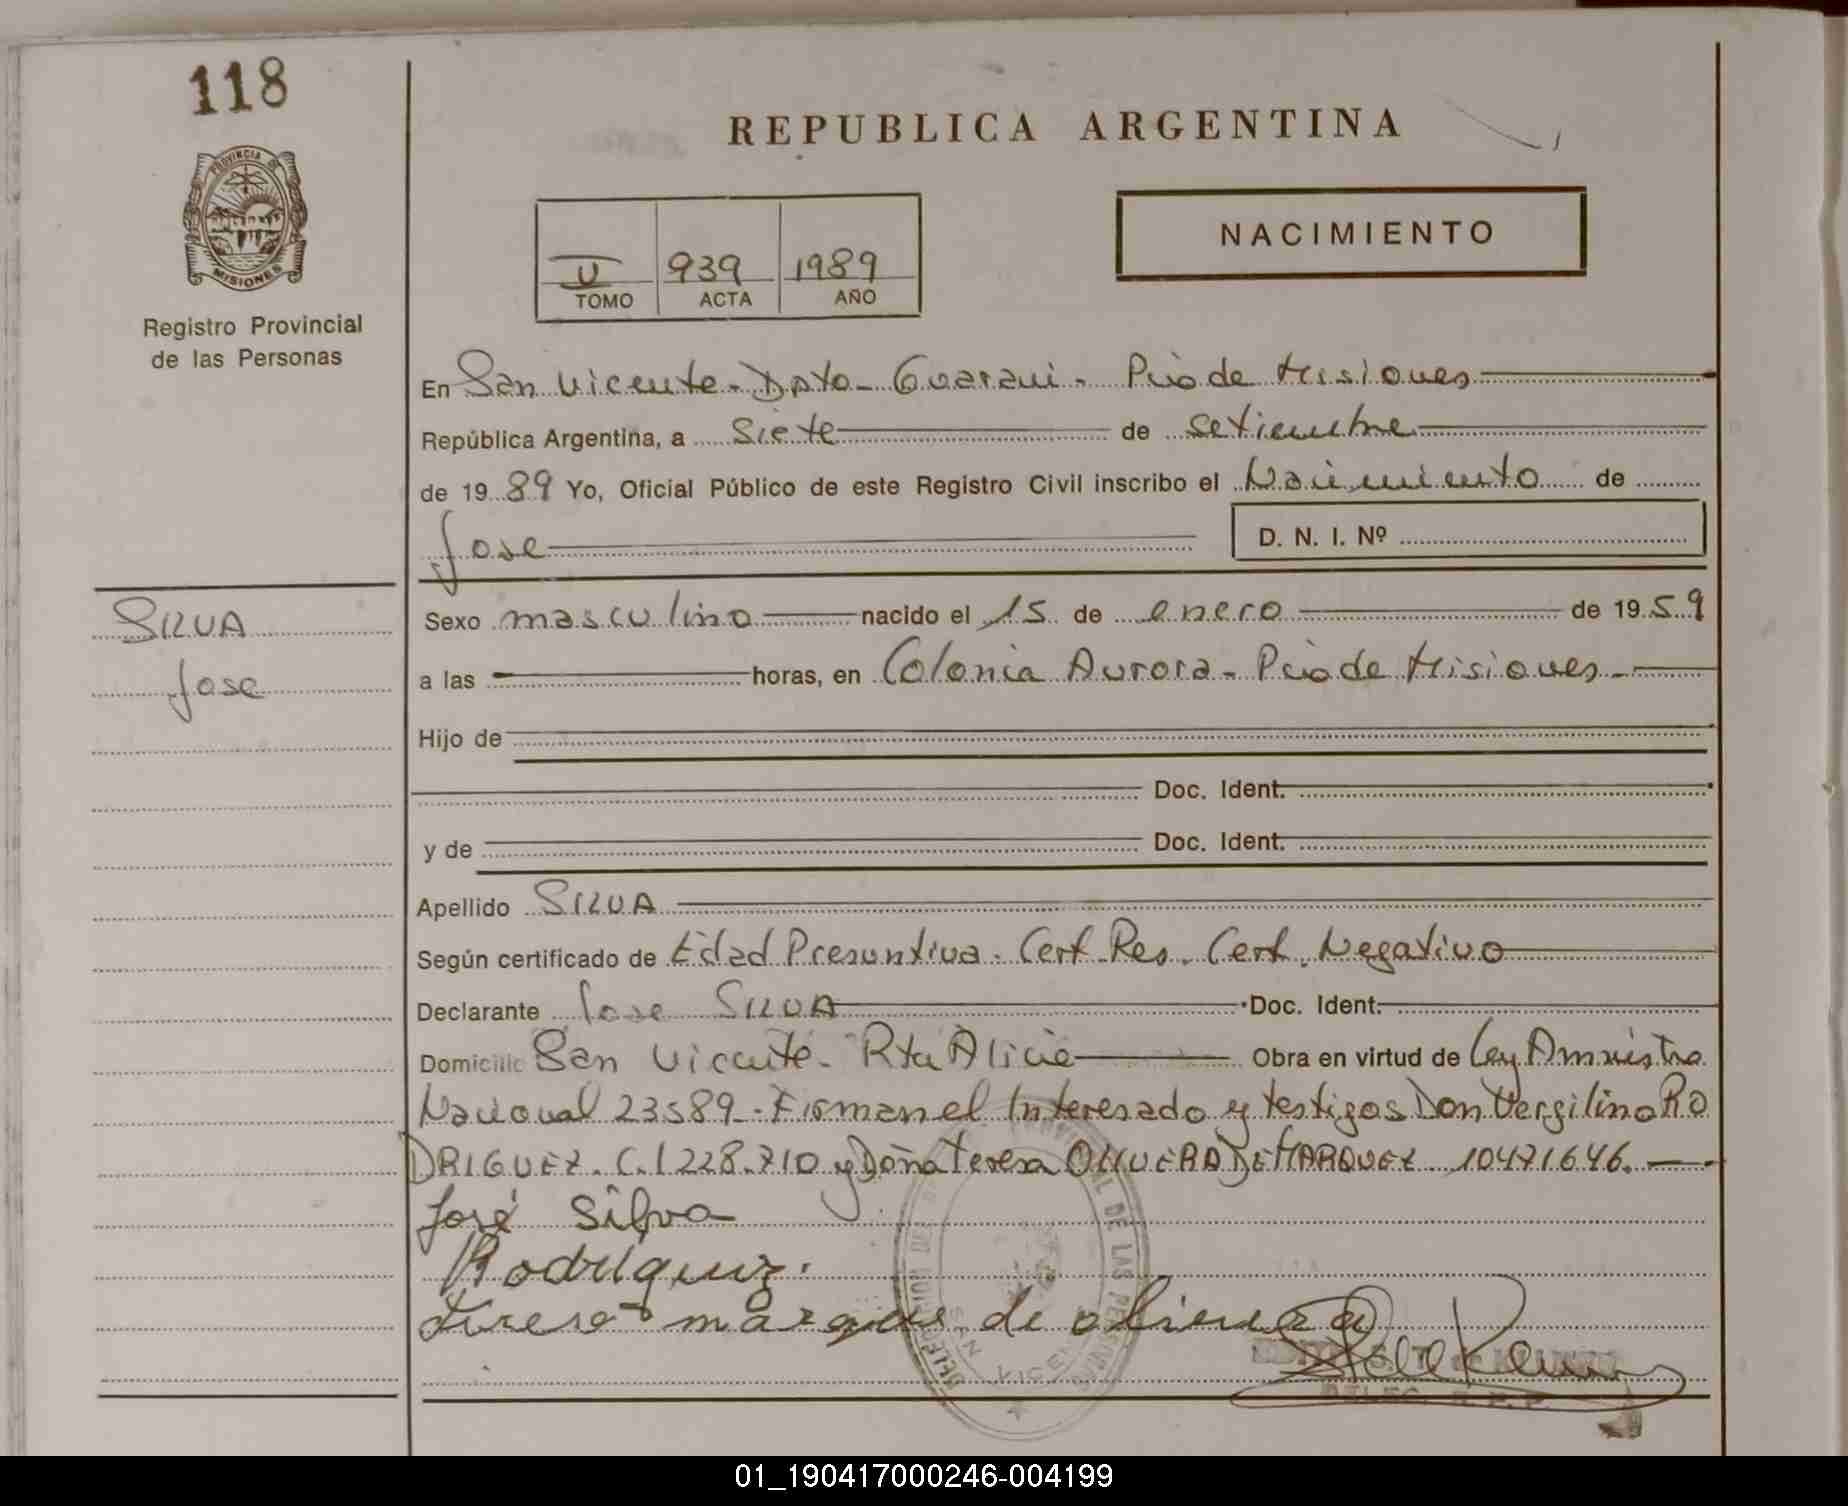 118
REPUBLICA ARGENTINA
PROVINCIA DE
MISIONES
Registro Provincial
de las Personas
939 1989
TOMO ACTA AÑO
NACIMIENTO
En San Vicente - Dpto - Guarani - Pcia de Misiones
República Argentina, a Siete de setiembre
de 1989 Yo, Oficial Público de este Registro Civil inscribo el Nacimiento de
Jose D. N. I. Nº
SILVA
Jose
Sexo masculino nacido el 15 de enero de 1959
a las horas, en Colonia Aurora - Pcia de Misiones
Hijo de
Doc. Ident.
y de Doc. Ident.
Apellido SILVA
Según certificado de Edad Presuntiva. Cert. Res. Cert. Negativo
Declarante Jose SILVA Doc. Ident.
Domicilio San Vicente - Rta Alicia Obra en virtud de Ley Amnistia
Nacional 23589 - Firman el Interesado y testigos Don Vergilino RO
DRIGUEZ. C.I 228.710 y Doña Teresa OLIVERA DE MARQUEZ 10471646.
José Silva
Rodriguez.
marques de olivera
SAN VICENTE
DELEG. R. P. P.
01_190417000246-004199